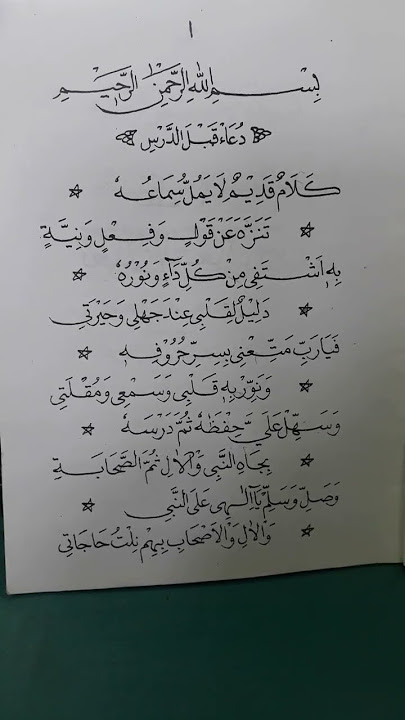 ١
بِسْمِ اللهِ الرَّحْمٰنِ الرَّحِيْمِ
دُعَاءْ قَبْلَ الدَّرْسِ
كَلَامٌ قَدِيْمٌ لَا يَمُلُّ سِمَاعُهُ
تَنَزَّهَ عَنْ قَوْلٍ وَفِعْلٍ وَنِيَّةٍ
بِهِ اَشْتَفِى مِنْ كُلِّ دَآءٍ وَنُوْرُهُ
دَلِيْلٌ لِقَلْبِى عِنْدَ جَهْلِى وَحَيْرَتِى
فَيَارَبِّ مَتِّعْنِى بِسِرِّ حُرُوْفِهِ
وَنَوِّرْ بِهِ قَلْبِى وَسَمْعِى وَمُقْلَتِى
وَسَهِّلْ عَلَيَّ حِفْظَهُ ثُمَّ دَرْسَهُ
بِجَاهِ النَّبِى وَالْاٰلِ ثُمَّ الصَّحَابَةِ
وَصَلِّ وَسَلِّمْ يَآاِلٰهِى عَلَى النَّبِى
وَالْاٰلِ وَالْاَصْحَابِ بِهِمْ نِلْتُ حَاجَاتِى